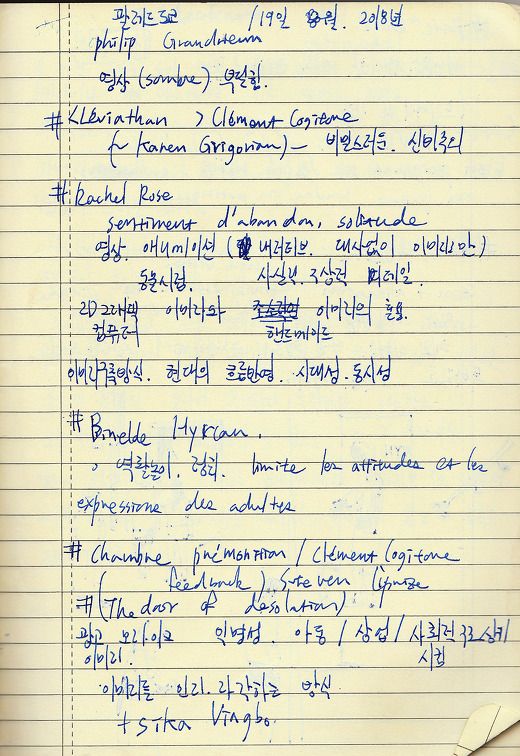 팔레드도쿄 /19일 8월. 2018년
philip Grandrieux
영상 (sombre) 부탁함.
# <Léviathan > Clément Cogitone
(~ Karen Grigorian) — 비밀스러운. 신비주의
# Rachel Rose
sentiment d'abandon, solitude
영상. 애니메이션 ( 내러티브. 대사없이 이미지만)
동물시점. 사실적. 추상적 디테일.
2D 그래픽 이미지와 이미지의 혼용.
컴퓨터 핸드메이드
이미지구축방식. 현대의 흐름반영. 시대성. 동시성
# Binelde Hyrcan.
역할놀이. limite les attitudes et les
expressions des adultes
# Chambre prémonition / Clément Cogitone
( feedback ) Steven
# (The door of desolation)
광고 모자이크 익명성. 아동 / 상업 / 사회적 구조 상기
이미지. 시킴
이미지를 인지. 자각하는 방식
+ sika Vingbo.